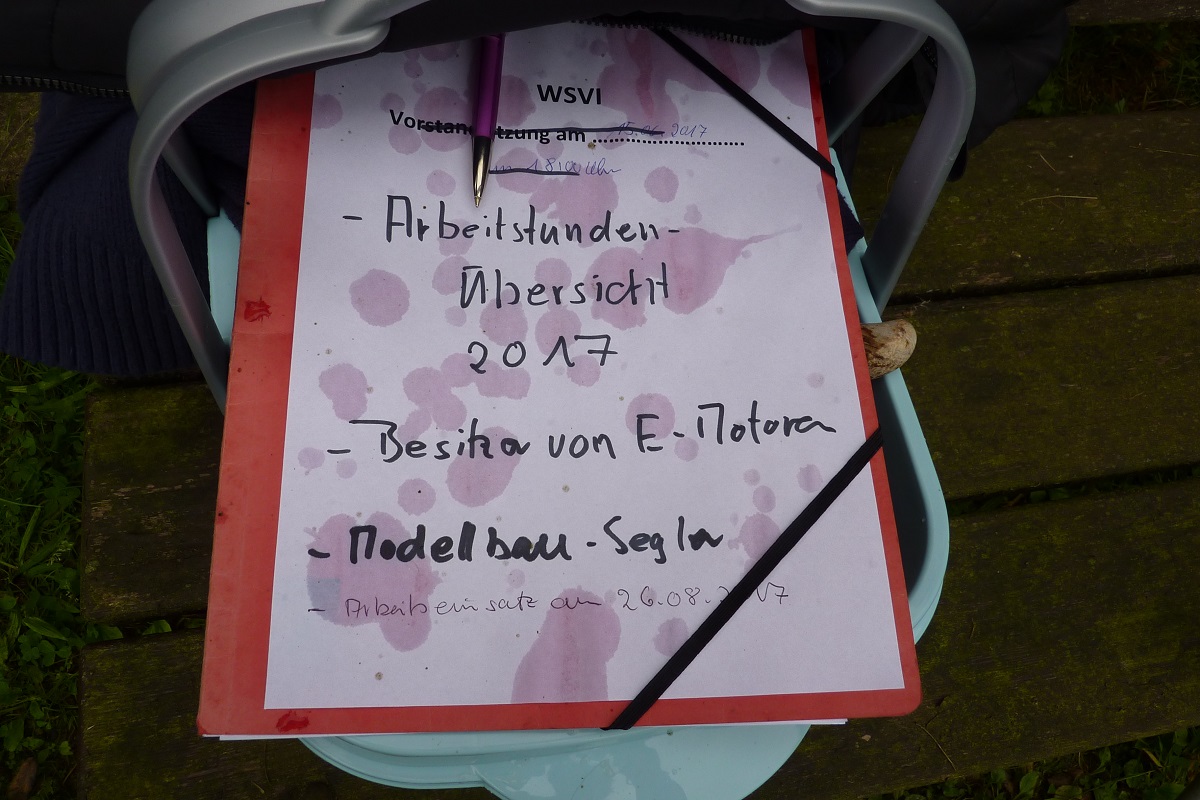 WSVI
Vorstandssitzung am 15.06. 2017
um 18:00 Uhr
- Arbeitstunden-
Übersicht
2017
- Besitzer von E-Motoren
- Modellbau-Segler
- Arbeitseinsatz am 26.08.2017